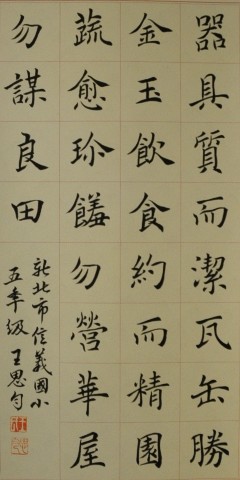 器具質而潔瓦缶勝
金玉飲食約而精園
蔬愈珍饈勿營華屋
勿謀良田
新北市信義國小
五年級 王思勻